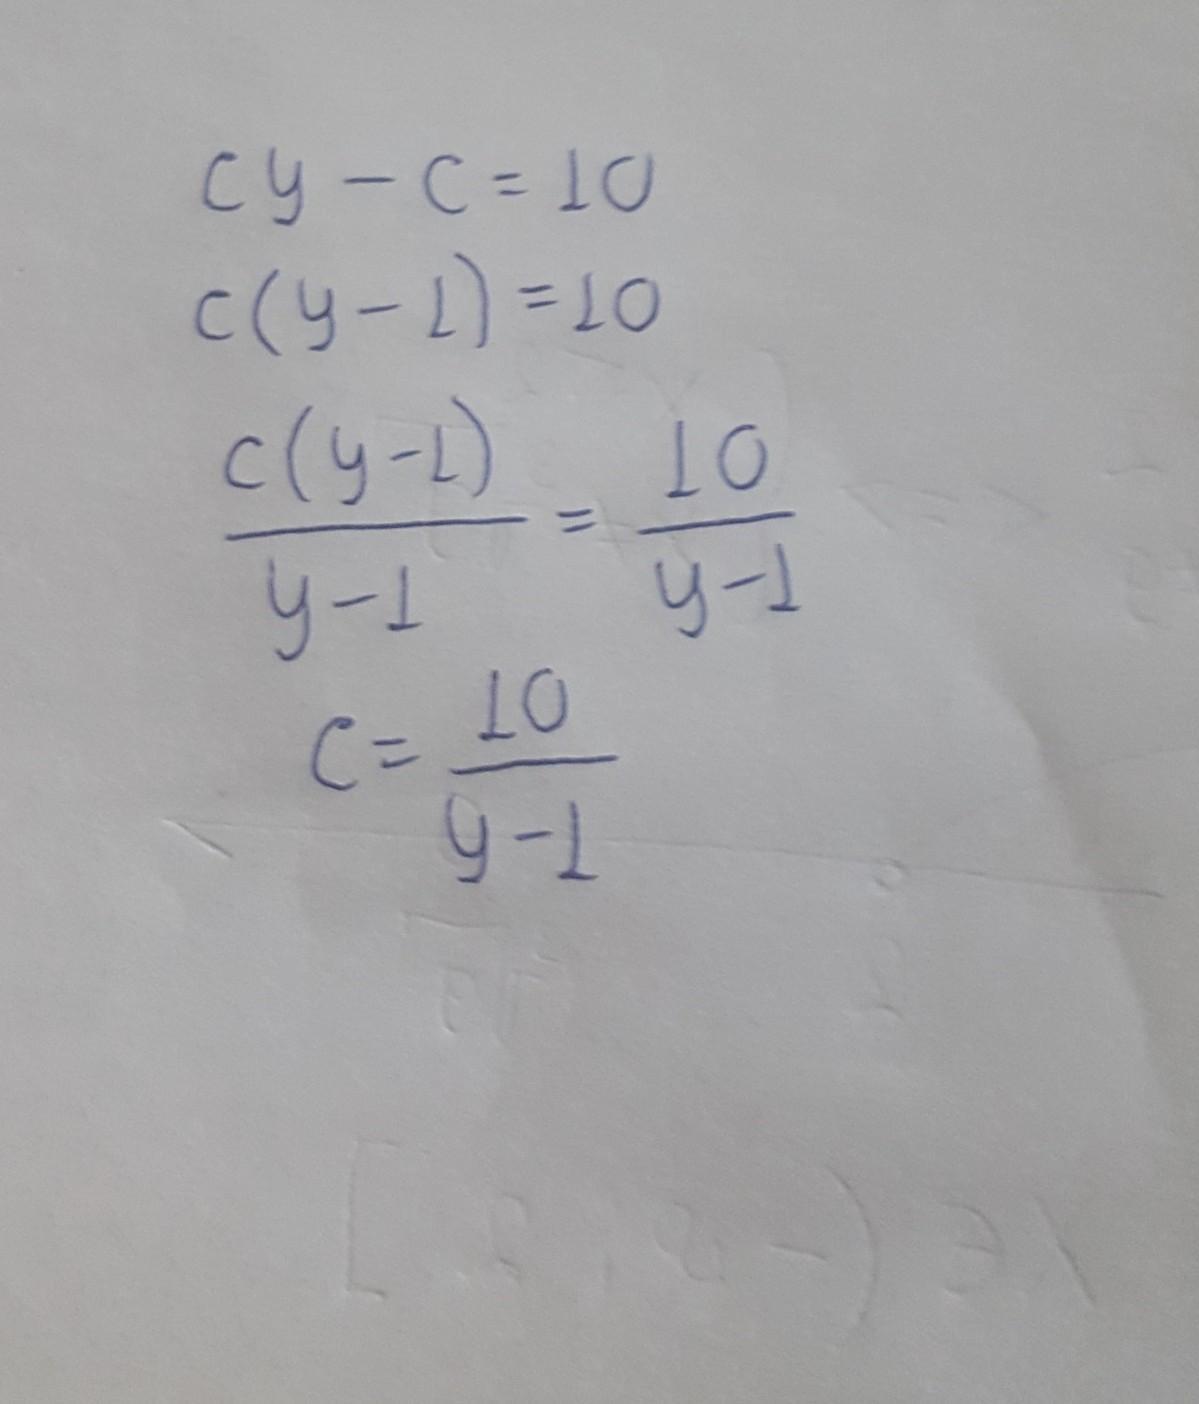 cy - c = 10
c(y - 1) = 10
c(y-1)/y-1 = 10/y-1
c = 10/y-1